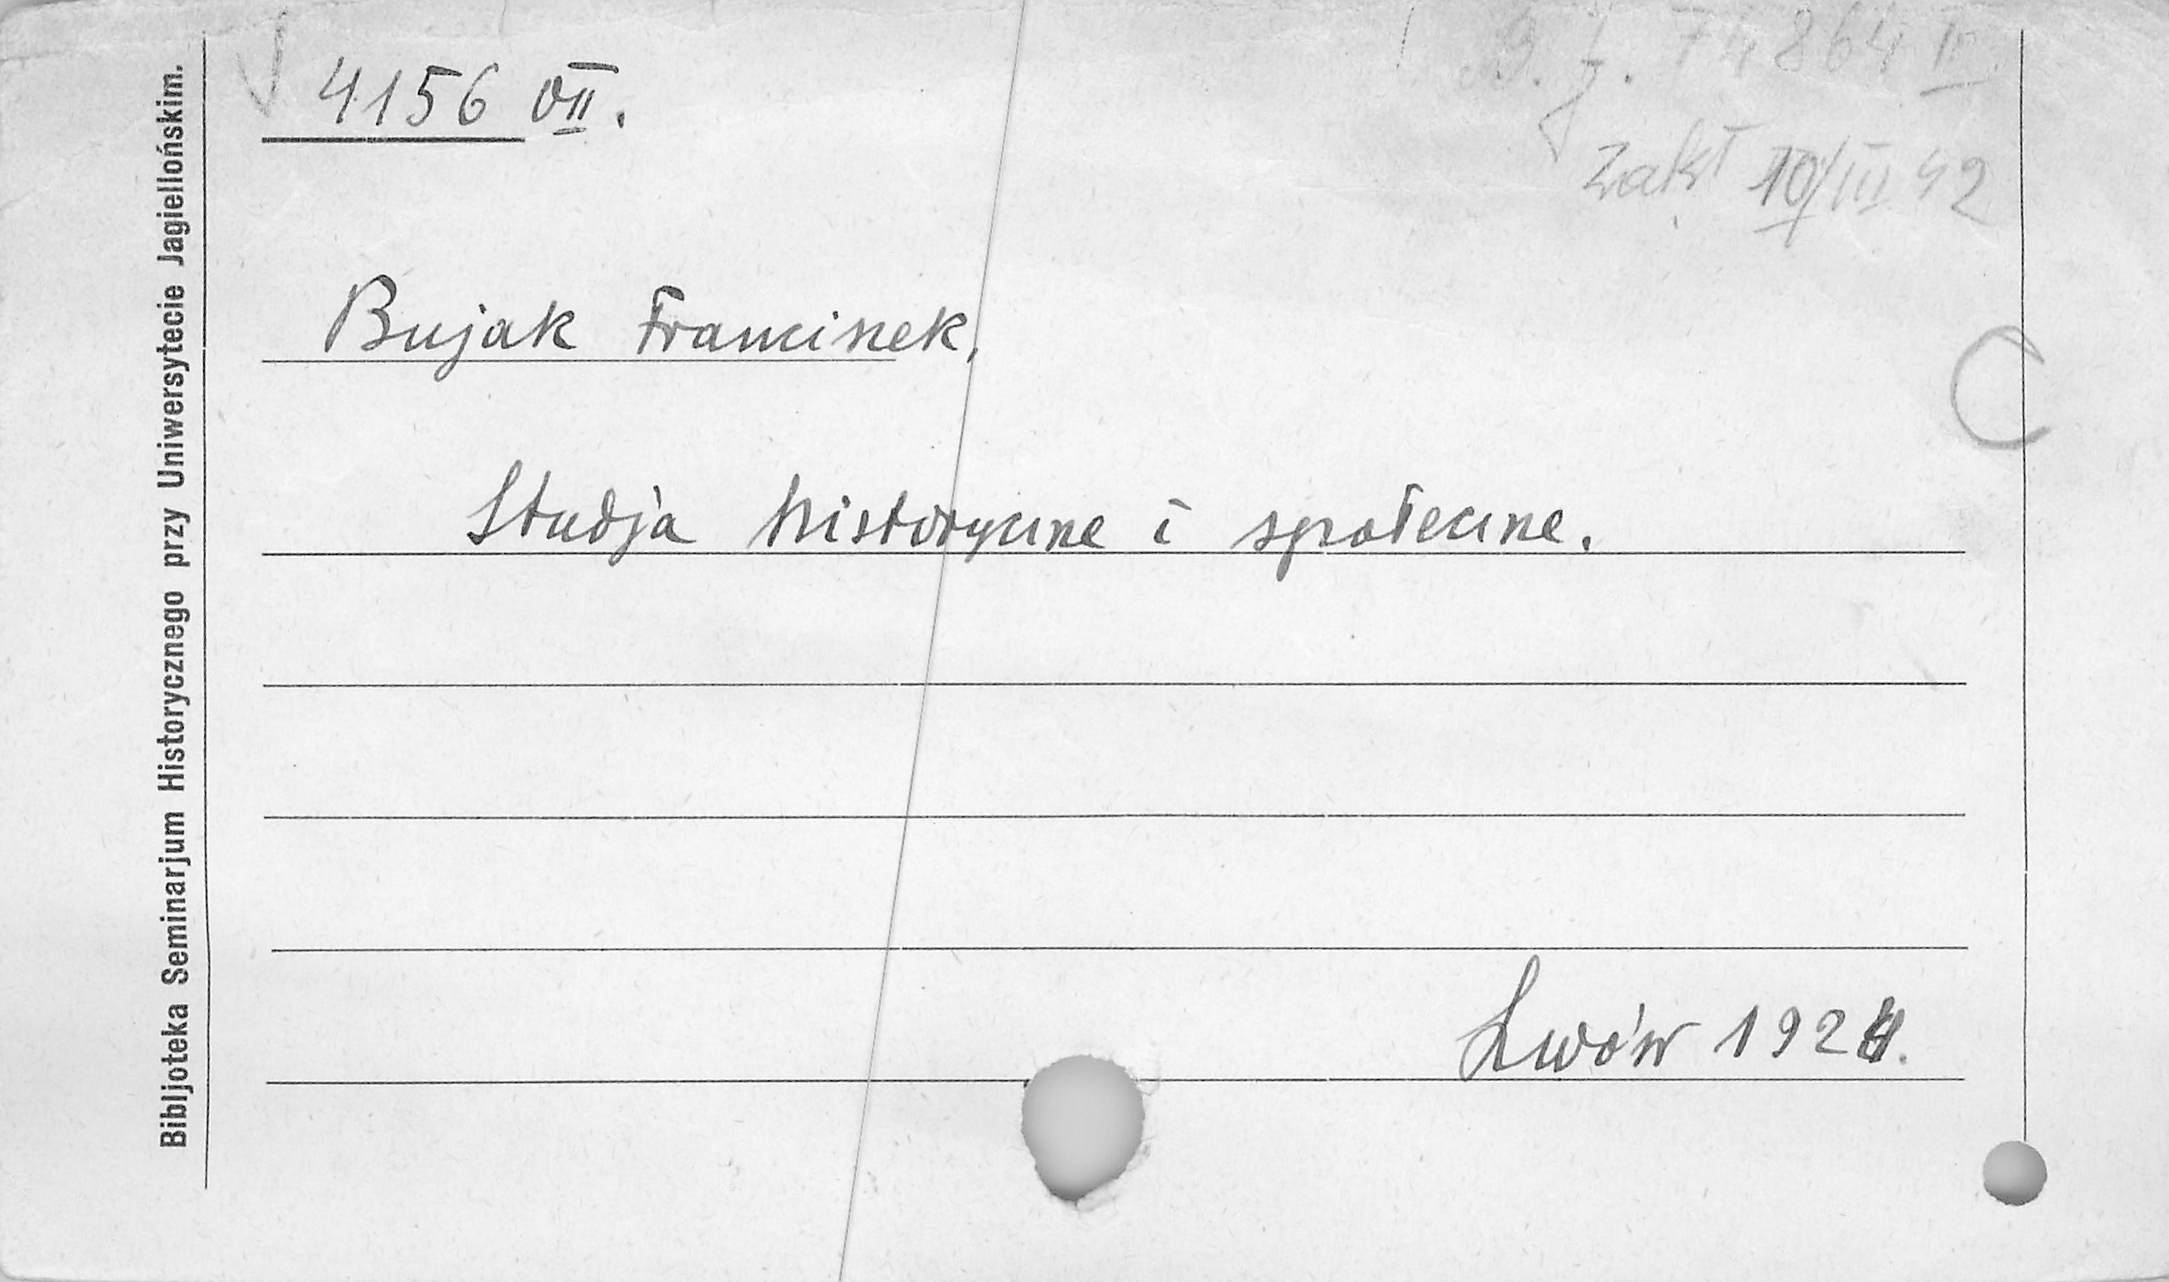 Bibljoteka Seminarjum Historycznego przy Uniwersytecie Jagiellońskim.
4156 VII.
74864 II
Zakł 10/III 42
Bujak Franciszek,
C
Studja historyczne i społeczne.
Lwów 1924.